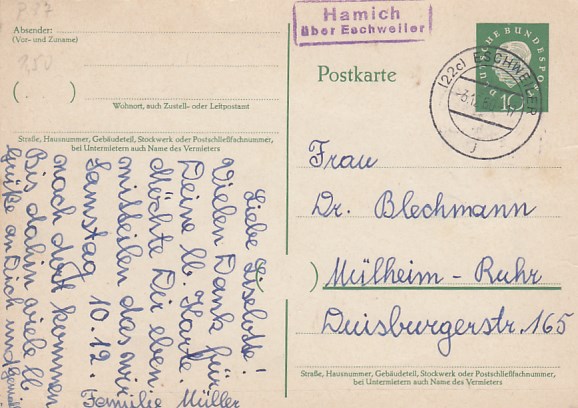 P 37
Absender:
(Vor- und Zuname)
Wohnort, auch Zustell- oder Leitpostamt
Straße, Hausnummer, Gebäudeteil, Stockwerk oder Postschließfachnummer,
bei Untermietern auch Name des Vermieters
Liebe Liselotte!
Vielen Dank für
Deine lb. Karte.
Möchte Dir eben
mitteilen das wir
Samstag 10.12.
nach dort kommen
Bis dahin viele lb
Grüße an Dich und
Familie Müller
Hamich
über Eschweiler
Postkarte
DEUTSCHE BUNDESPOST
10
(22c) ESCHWEILER
Frau
Dr. Blechmann
Mülheim - Ruhr
Duisburgerstr. 165
Straße, Hausnummer, Gebäudeteil, Stockwerk oder Postschließfachnummer,
bei Untermietern auch Name des Vermieters